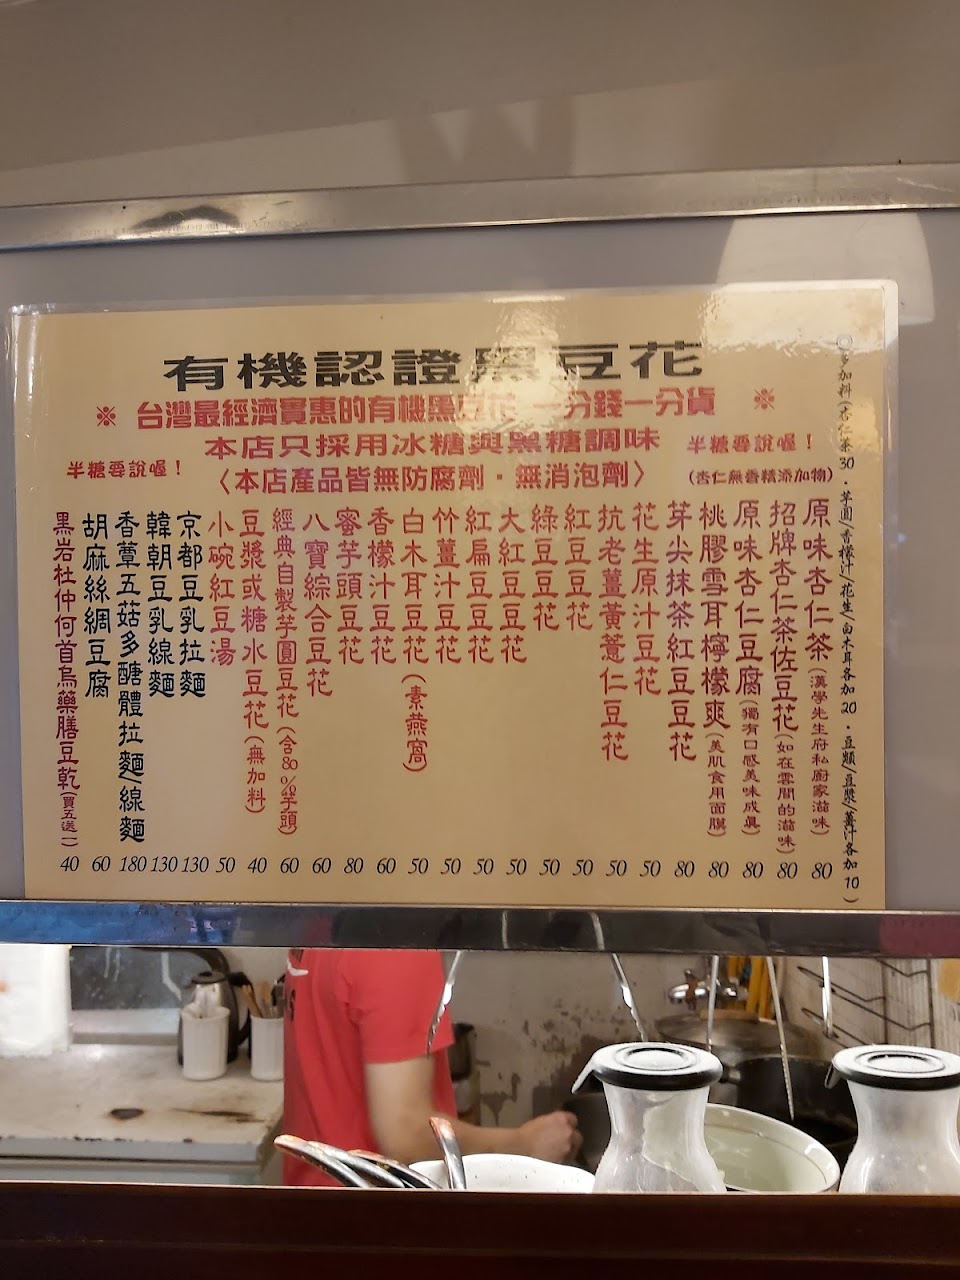 有機認證黑豆花
※ 台灣最經濟實惠的有機黑豆花 一分錢一分貨 ※
本店只採用冰糖與黑糖調味
半糖要說喔！
半糖要說喔！
〈本店產品皆無防腐劑・無消泡劑〉
(杏仁無香精添加物)
◎多加料(杏仁茶30・芋圓/香檬汁/花生/白木耳各加20・豆類/豆漿/薑汁各加10)
原味杏仁茶(漢學先生府私廚家滋味) 80
招牌杏仁茶佐豆花(如在雲間的滋味) 80
原味杏仁豆腐(獨有口感美味成真) 80
桃膠雪耳檸檬爽(美肌食用面膜) 80
芽尖抹茶紅豆豆花 80
花生原汁豆花 50
抗老薑黃薏仁豆花 50
紅豆豆花 50
綠豆豆花 50
大紅豆豆花 50
紅扁豆豆花 50
竹薑汁豆花 50
白木耳豆花(素燕窩) 50
香檬汁豆花 60
蜜芋頭豆花 80
八寶綜合豆花 60
經典自製芋圓豆花(含80%芋頭) 60
豆漿或糖水豆花(無加料) 40
小碗紅豆湯 50
京都豆乳拉麵 130
韓朝豆乳線麵 130
香蕈五菇多醣體拉麵/線麵 180
胡麻絲綢豆腐 60
黑岩杜仲何首烏藥膳豆乾(買五送一) 40